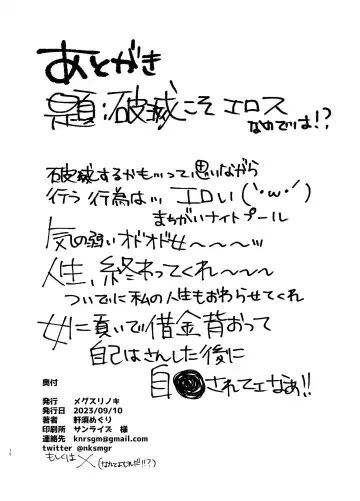 あとがき
異題:破滅こそエロス
なのでは!?
破滅するかも…って思いながら
行う行為は… エロい(`・ω・´)
まちがいナイトプール
気の弱いオドオド女〜〜〜〜…
人生、終わってくれ〜〜〜
ついでに私の人生もおわらせてくれ
女に貢いで借金背おって
自己はさんした後に
自●されてェなぁ!!
奥付
発行 メグスリノキ
発行日 2023/09/10
著者 軒須めぐり
印刷所 サンライズ 様
連絡先 knrsgm@gmail.com
twitter @nksmgr
もしくはX